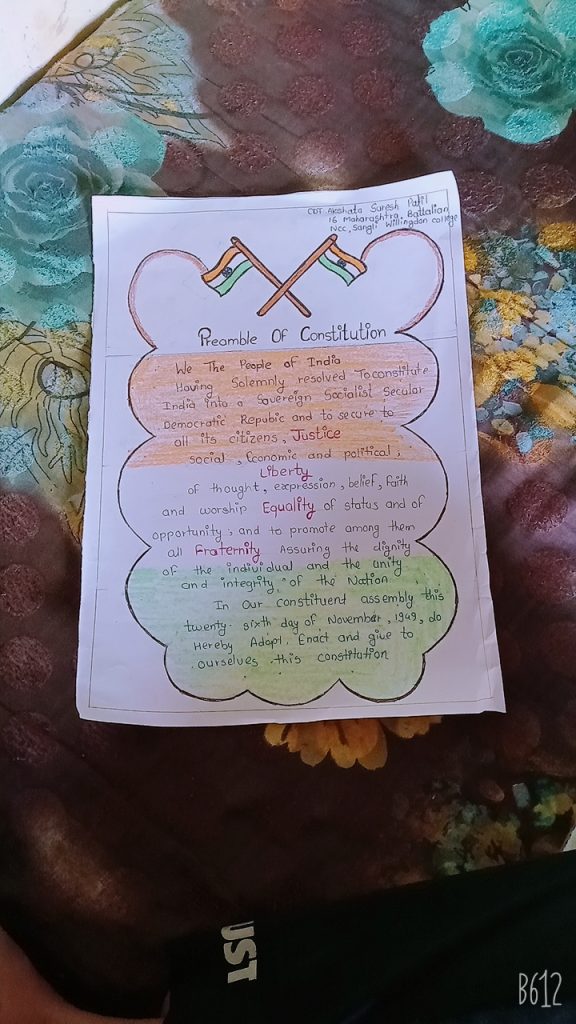 CDT. Akshata Suresh Patil
16 Maharashtra, Battalian
NCC, Sangli Willingdon college
Preamble Of Constitution
We The People of India
Having Solemnly resolved To constitute
India into a Sovereign Socialist Secular
Democratic Repubic and to secure to
all its citizens, Justice
social, Economic and political;
Liberty
of thought, expression, belief, faith
and worship Equality of status and of
opportunity; and to promote among them
all Fraternity Assuring the dignity
of the individual and the unity
and integrity of the Nation
In Our constituend assembly this
twenty sixth day of November, 1949, do
Hereby Adopt, Enact and give to
ourselves this constitution
UST
B612